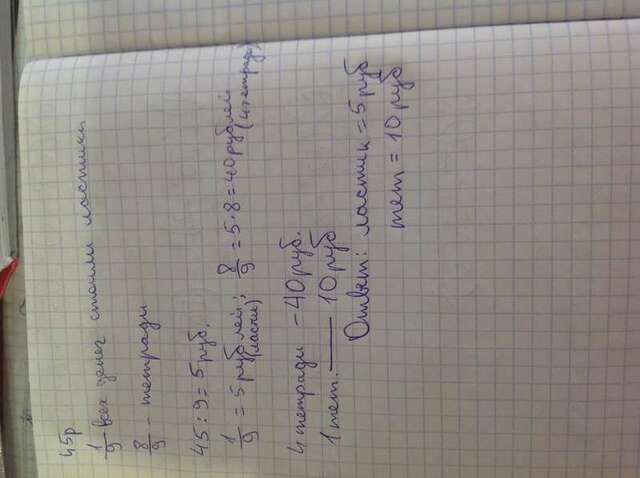 45р
1/9 всех денег стоили ластики
8/9 - тетради
45:9=5 руб.
1/9 = 5 рублей; 8/9 = 5·8=40 рублей
(ластик) (4 тетради)
4 тетради - 40 руб.
1 тет. — 10 руб
Ответ: ластик = 5 руб
тет = 10 руб